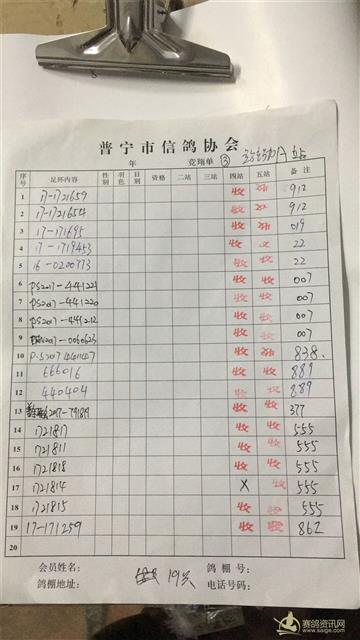 普宁市信鸽协会
年 竞翔单 ③
序号 足环内容 性别 羽色 日别 资格 二站 三站 四站 五站 备注
1 17-1721659 收 912
2 17-1721654 收 912
3 17-171695 收 收 019
4 17-1719453 收 22
5 16-0200773 收 收 22
6 PS2017-441221 收 收 007
7 PS2017-441220 收 收 007
8 PS2017-441212 收 收 007
9 -0060623 收 收 007
10 收 838.
11 666016 收 收 889
12 440404 收 收 889
13 2017-791819 收 收 377
14 1721817 收 收 555
15 1721811 收 收 555
16 1721818 收 收 555
17 1721814 X 收 555
18 1721815 收 收 555
19 17-171259 收 收 862
20
会员姓名: 鸽棚号:
鸽棚地址: 19只 电话号码:
赛鸽资讯网
www.saige.com